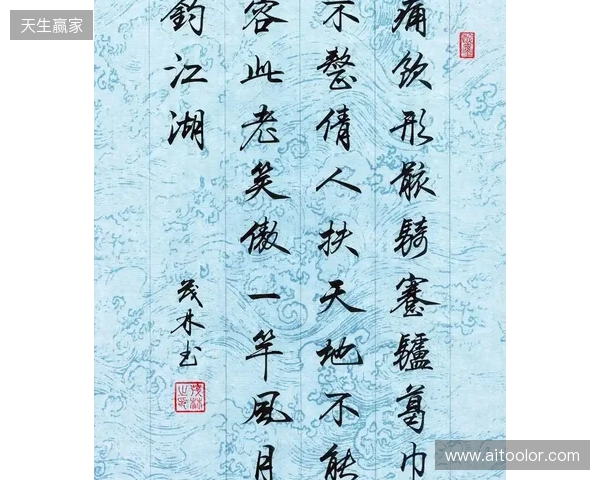 天生赢家
痛飲形骸騎蹇驢葛巾
不整倩人扶天地不能
容此老笑傲一竿風月
釣江湖
茂林书
www.aitoolor.com